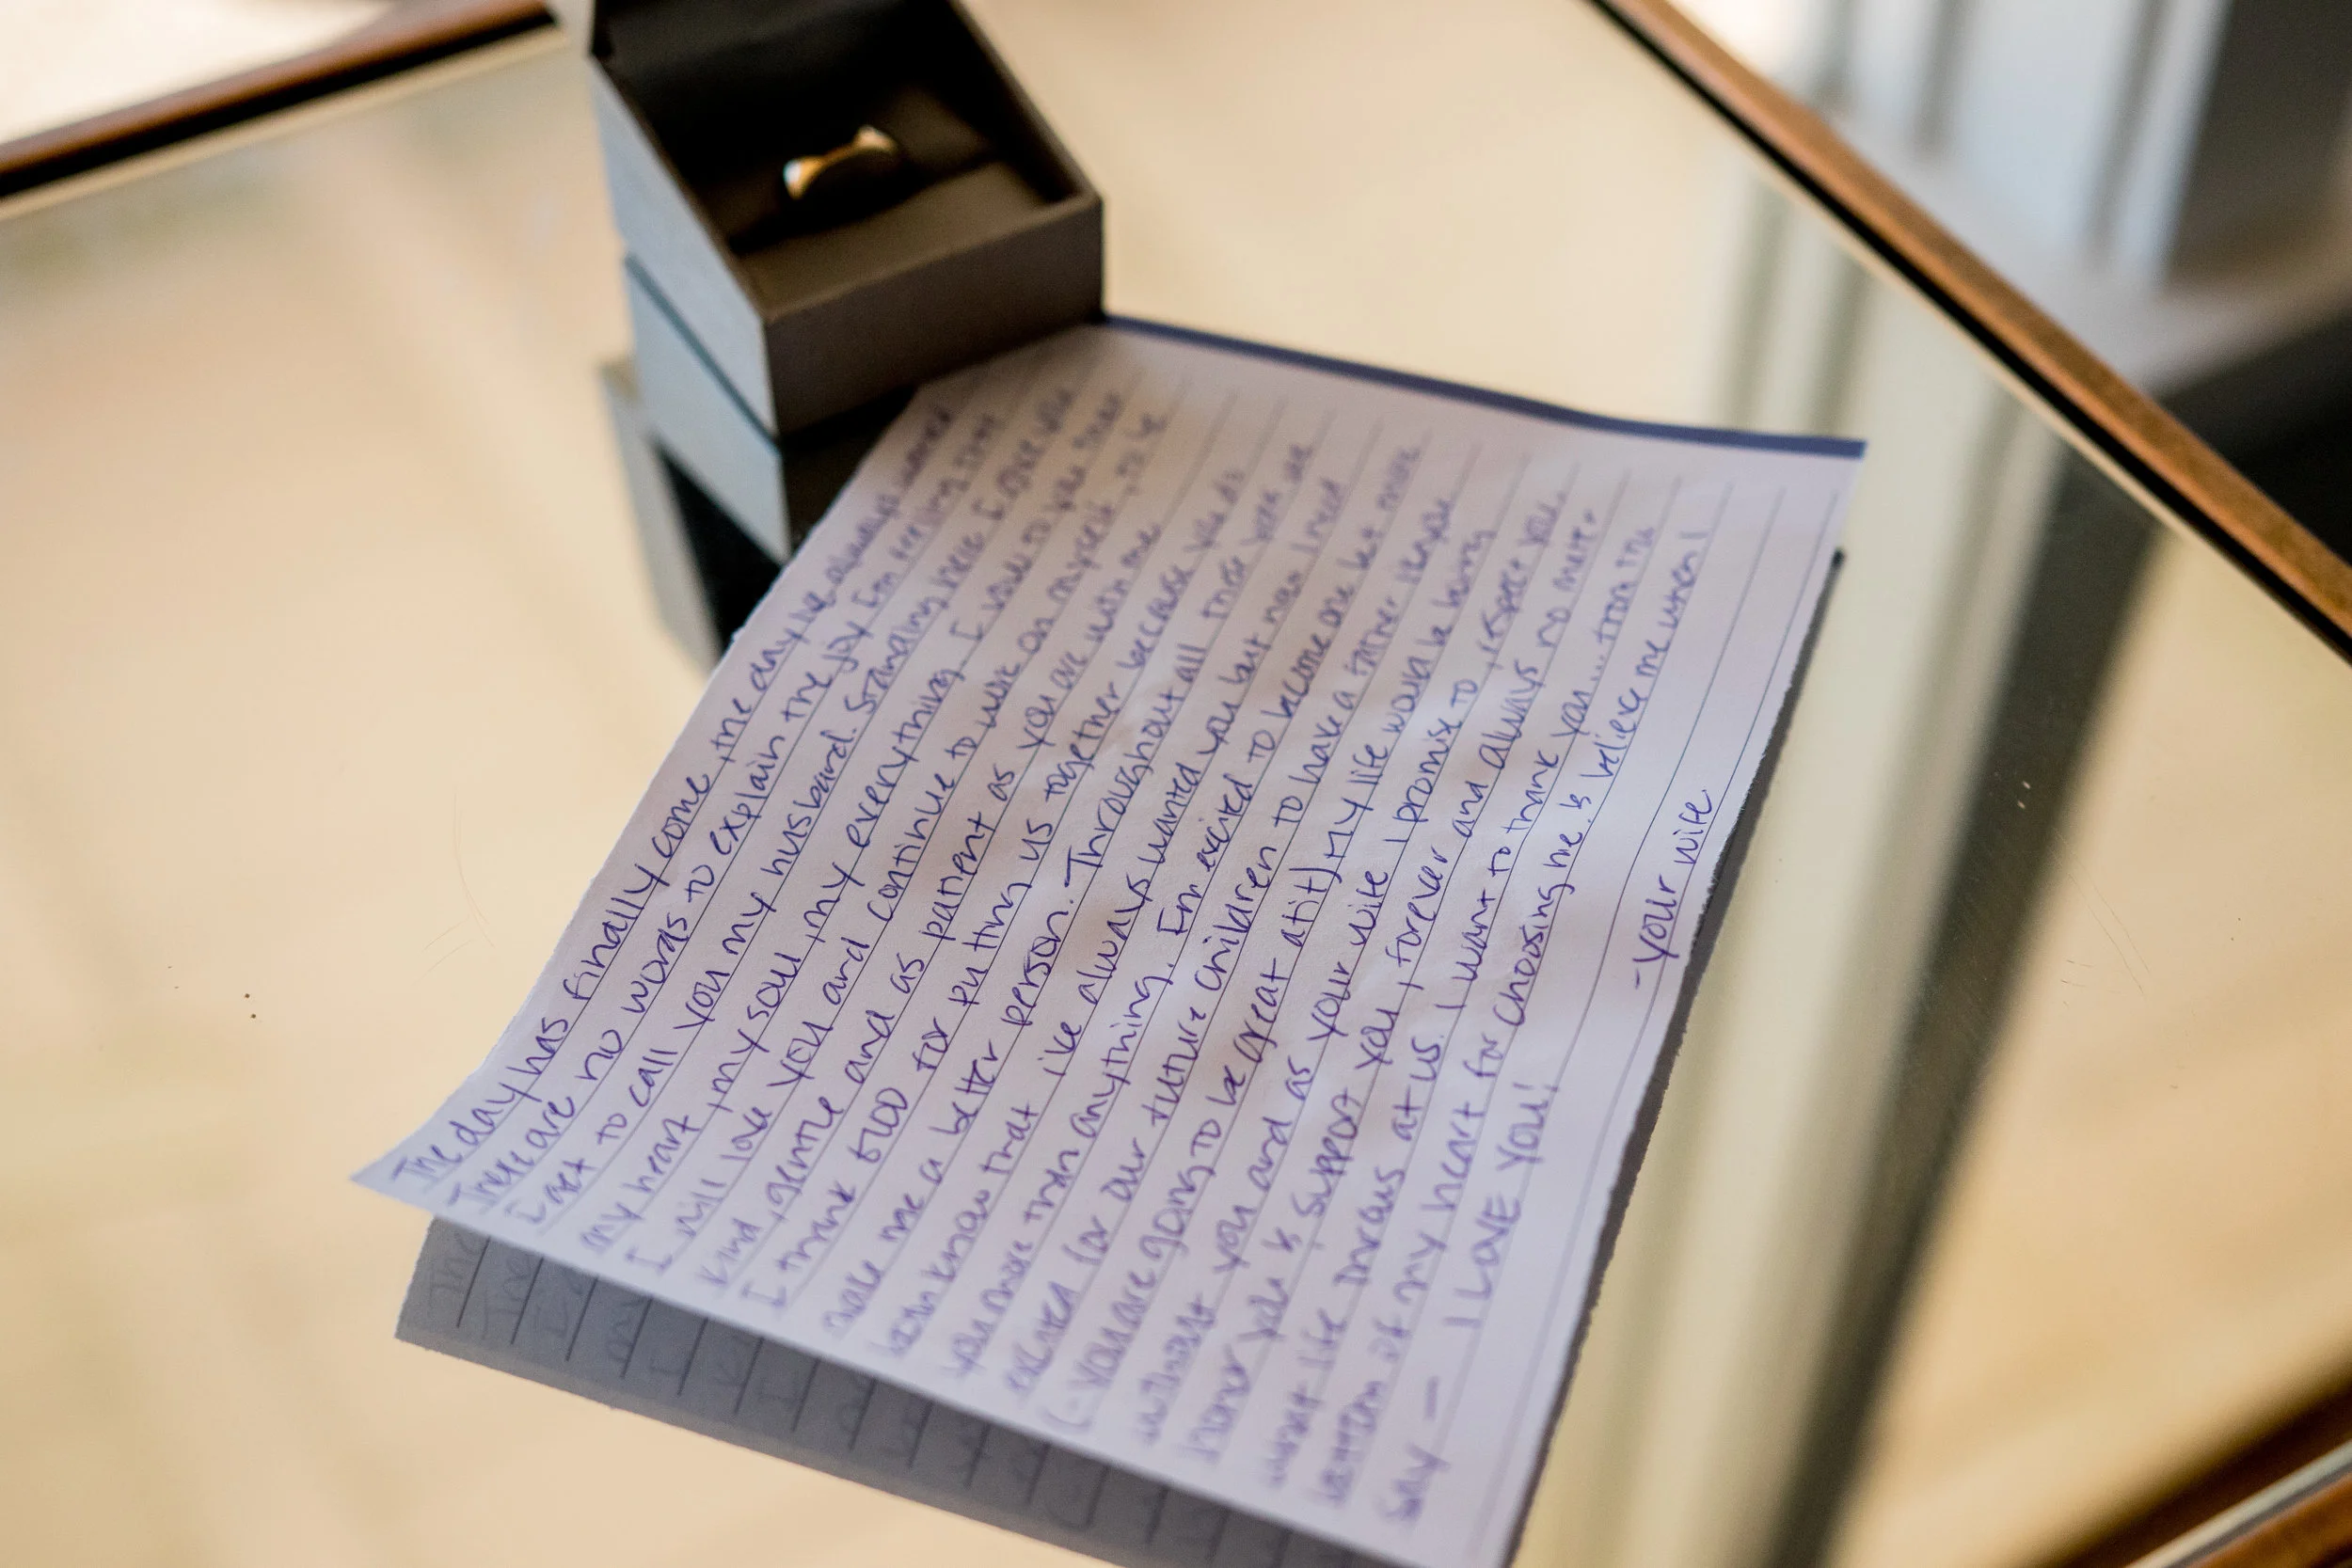 The day has finally come, the day we always wanted
There are no words to explain the joy I'm feeling that
I get to call you my husband. Standing here I give you
my heart, my soul, my everything. I vow to you that
I will love you and continue to work on myself, to be
kind, gentle and as patient as you are with me
I thank GOD for putting us together because you do
make me a better person. Throughout all these years we
both know that I've always wanted you but now I need
you more than anything. I'm excited to become one but more
excited for our future children to have a father like you
(- you are going to be great at it) My life would be boring
without you and as your wife I promise to, respect you,
honor you & support you, forever and always no matter
what life throws at us. I want to thank you... from the
bottom of my heart for choosing me & believe me when I
say - I LOVE YOU!
- your wife